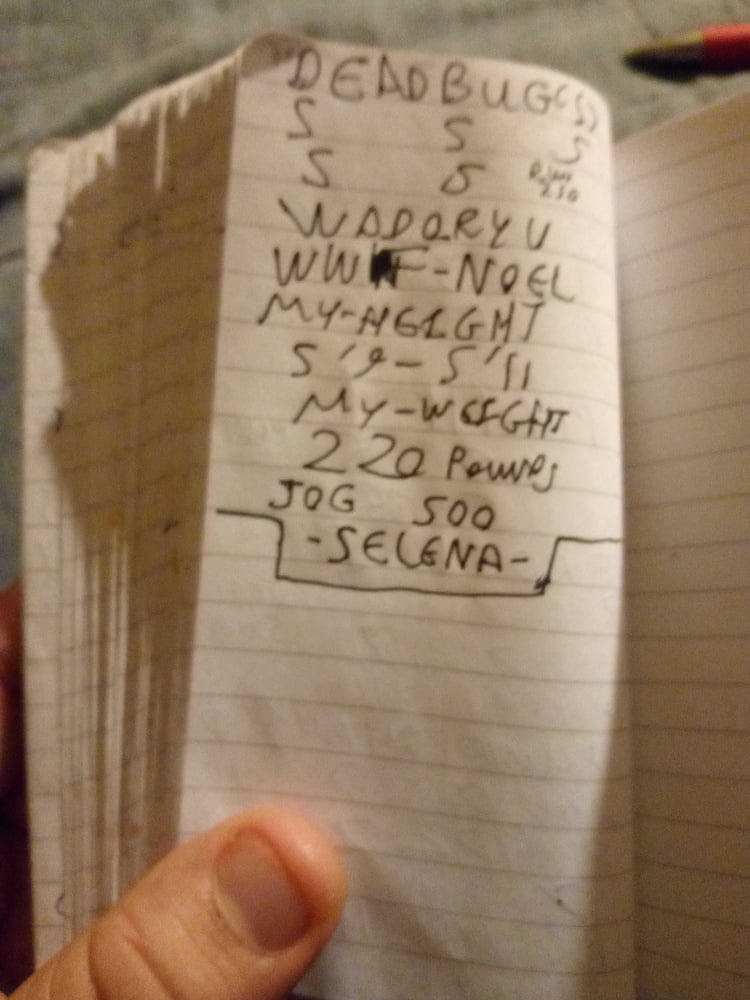 "DEADBUG(S)
S S S
S S
250
WADORYU
WWF-NOEL
MY-HEIGHT
5'9-5'11
MY-WEIGHT
220 POUNDS
JOG 500
-SELENA-